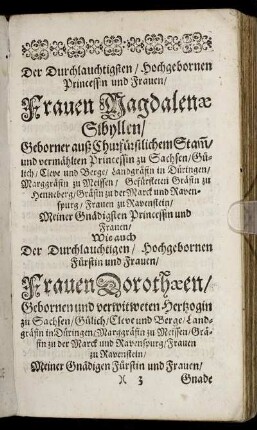 Der Durchlauchtigsten / Hochgebornen
Princessin und Frauen /
Frauen Magdalenæ
Sibyllen /
Geborner auß Churfürstlichem Stam̃ /
und vermählten Princessin zu Sachsen / Gü-
lich / Cleve und Berge / Landgräfin in Düringen /
Marggräfin zu Meissen / Gefürsteten Gräfin zu
Henneberg / Gräfin zu der Marck und Raven-
spurg / Frauen zu Ravenstein /
Meiner Gnädigsten Princessin und
Frauen /
Wie auch
Der Durchlauchtigen / Hochgebornen
Fürstin und Frauen /
Frauen Dorotheæen /
Gebornen und verwitweten Hertzogin
zu Sachsen / Gülich / Cleve und Berge / Land-
gräfin in Düringen / Marggräfin zu Meissen / Grä-
fin zu der Marck und Ravenspurg / Frauen
zu Ravenstein /
Meiner Gnädigen Fürstin und Frauen /
X 3 Gnade